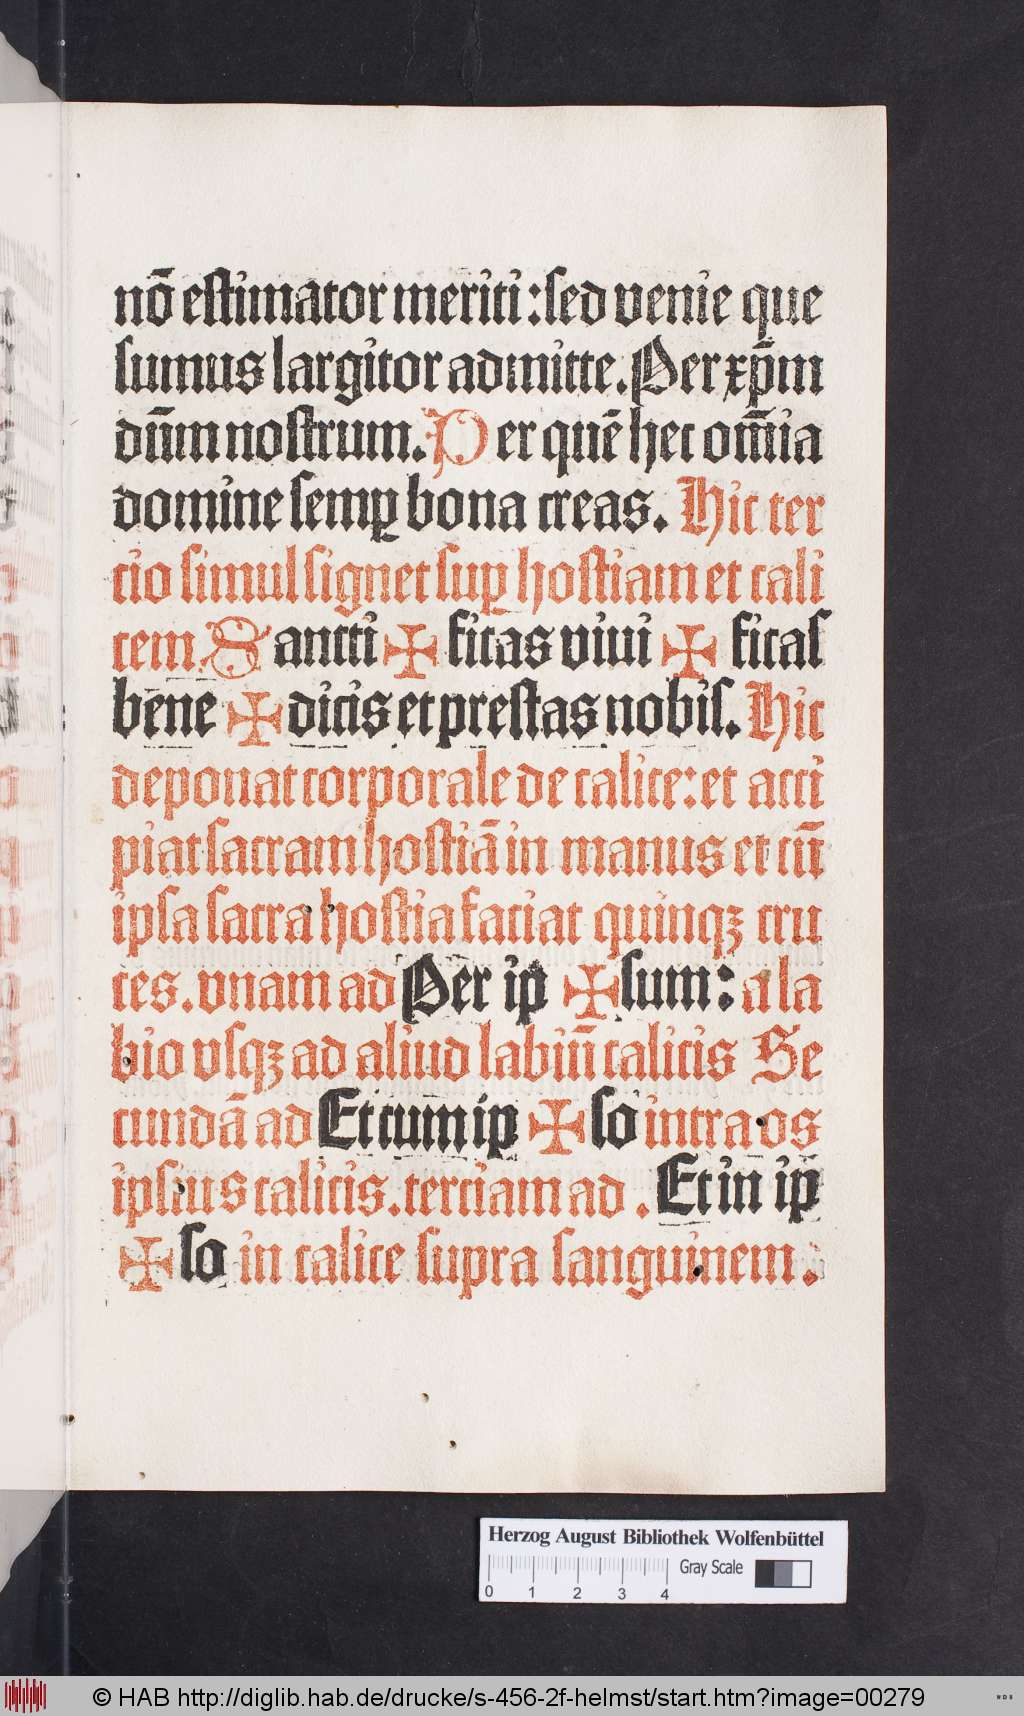 nō estimator meriti: sed venie que
sumus largitor admitte. Per xp̄m
dn̄m nostrum. Per quē hec om̄ia
domine semꝑ bona creas. Hic ter
cio simul signet suꝑ hostiam et cali
cem. Sancti ✠ ficas vivi ✠ ficas
bene ✠ dicis et prestas nobis. Hic
deponat corporale de calice: et acci
piat sacram hostiā in manus et cū
ipsa sacra hostia faciat quinqꝫ cru
ces. vnam ad Per ip ✠ sum: a la
bio vsqꝫ ad aliud labiū calicis Se
cundā ad Et cum ip ✠ so intra os
ipsius calicis. terciam ad . Et in ip
✠ so in calice supra sanguinem.
Herzog August Bibliothek Wolfenbüttel
Gray Scale
0 1 2 3 4
© HAB http://diglib.hab.de/drucke/s-456-2f-helmst/start.htm?image=00279